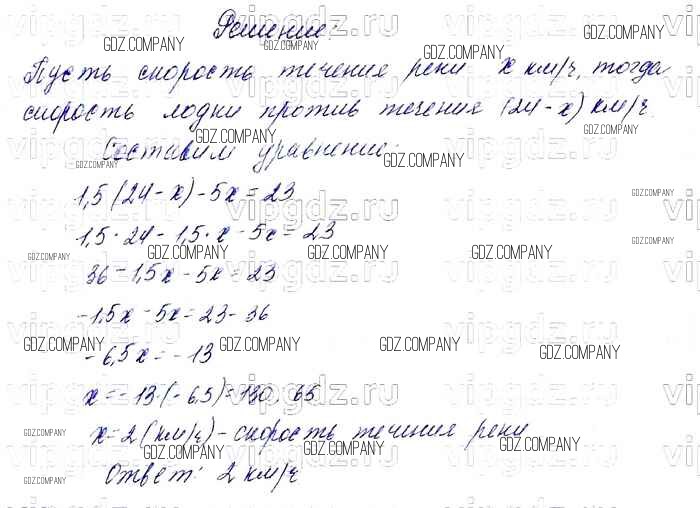 Решение:
Пусть скорость течения реки х км/ч, тогда
скорость лодки против течения (24-х) км/ч.
Составим уравнение:
1,5(24-х)-5х=23
1,5·24-1,5·х-5х=23
36-1,5х-5х=23
-1,5х-5х=23-36
-6,5х=-13
х=-13:(-6,5)=130:65
х=2(км/ч)-скорость течения реки
Ответ: 2 км/ч
GDZ.COMPANY
vipgdz.ru